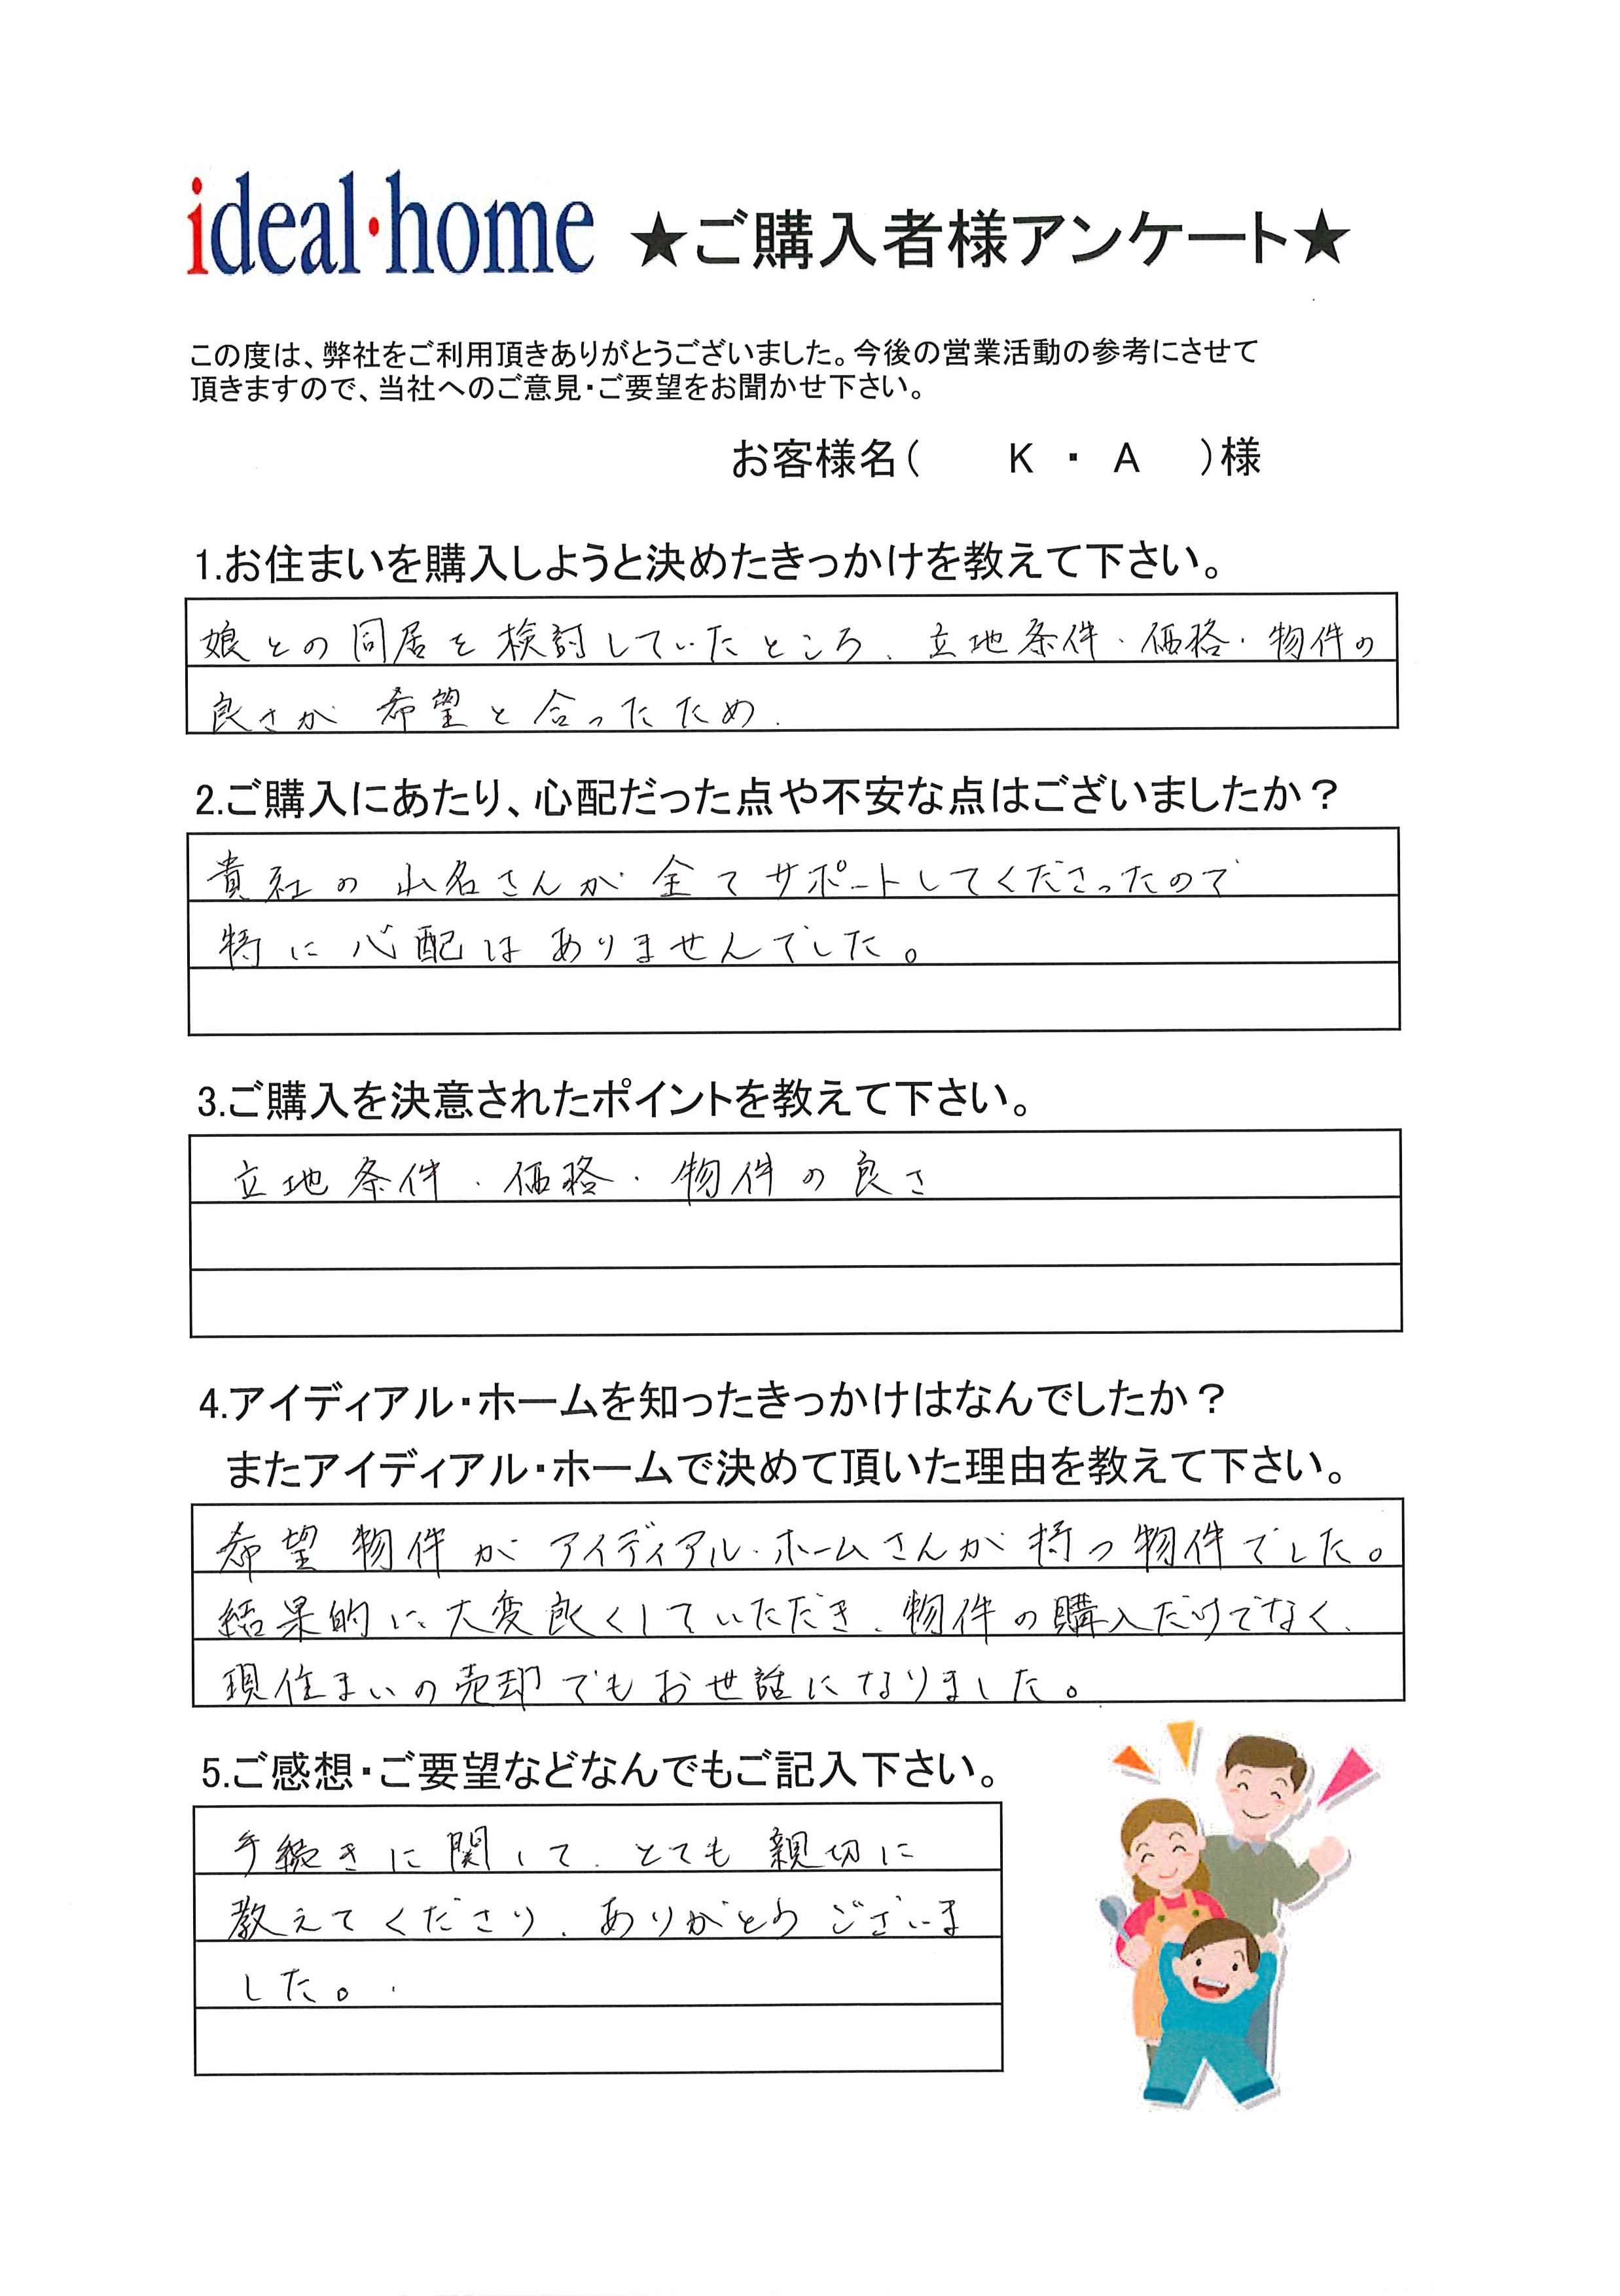 ideal・home ★ご購入者様アンケート★
この度は、弊社をご利用頂きありがとうございました。今後の営業活動の参考にさせて
頂きますので、当社へのご意見・ご要望をお聞かせ下さい。
お客様名（　　K ・ A　）様
1.お住まいを購入しようと決めたきっかけを教えて下さい。
娘との同居を検討していたところ、立地条件・価格・物件の
良さが希望と合ったため.
2.ご購入にあたり、心配だった点や不安な点はございましたか？
貴社の山名さんが全てサポートしてくださったので
特に心配はありませんでした。
3.ご購入を決意されたポイントを教えて下さい。
立地条件・価格・物件の良さ
4.アイディアル・ホームを知ったきっかけはなんでしたか？
またアイディアル・ホームで決めて頂いた理由を教えて下さい。
希望物件がアイディアル・ホームさんが持つ物件でした。
結果的に大変良くしていただき、物件の購入だけでなく、
現住まいの売却でもお世話になりました。
5.ご感想・ご要望などなんでもご記入下さい。
手続きに関して、とても親切に
教えてくださり、ありがとうございま
した。